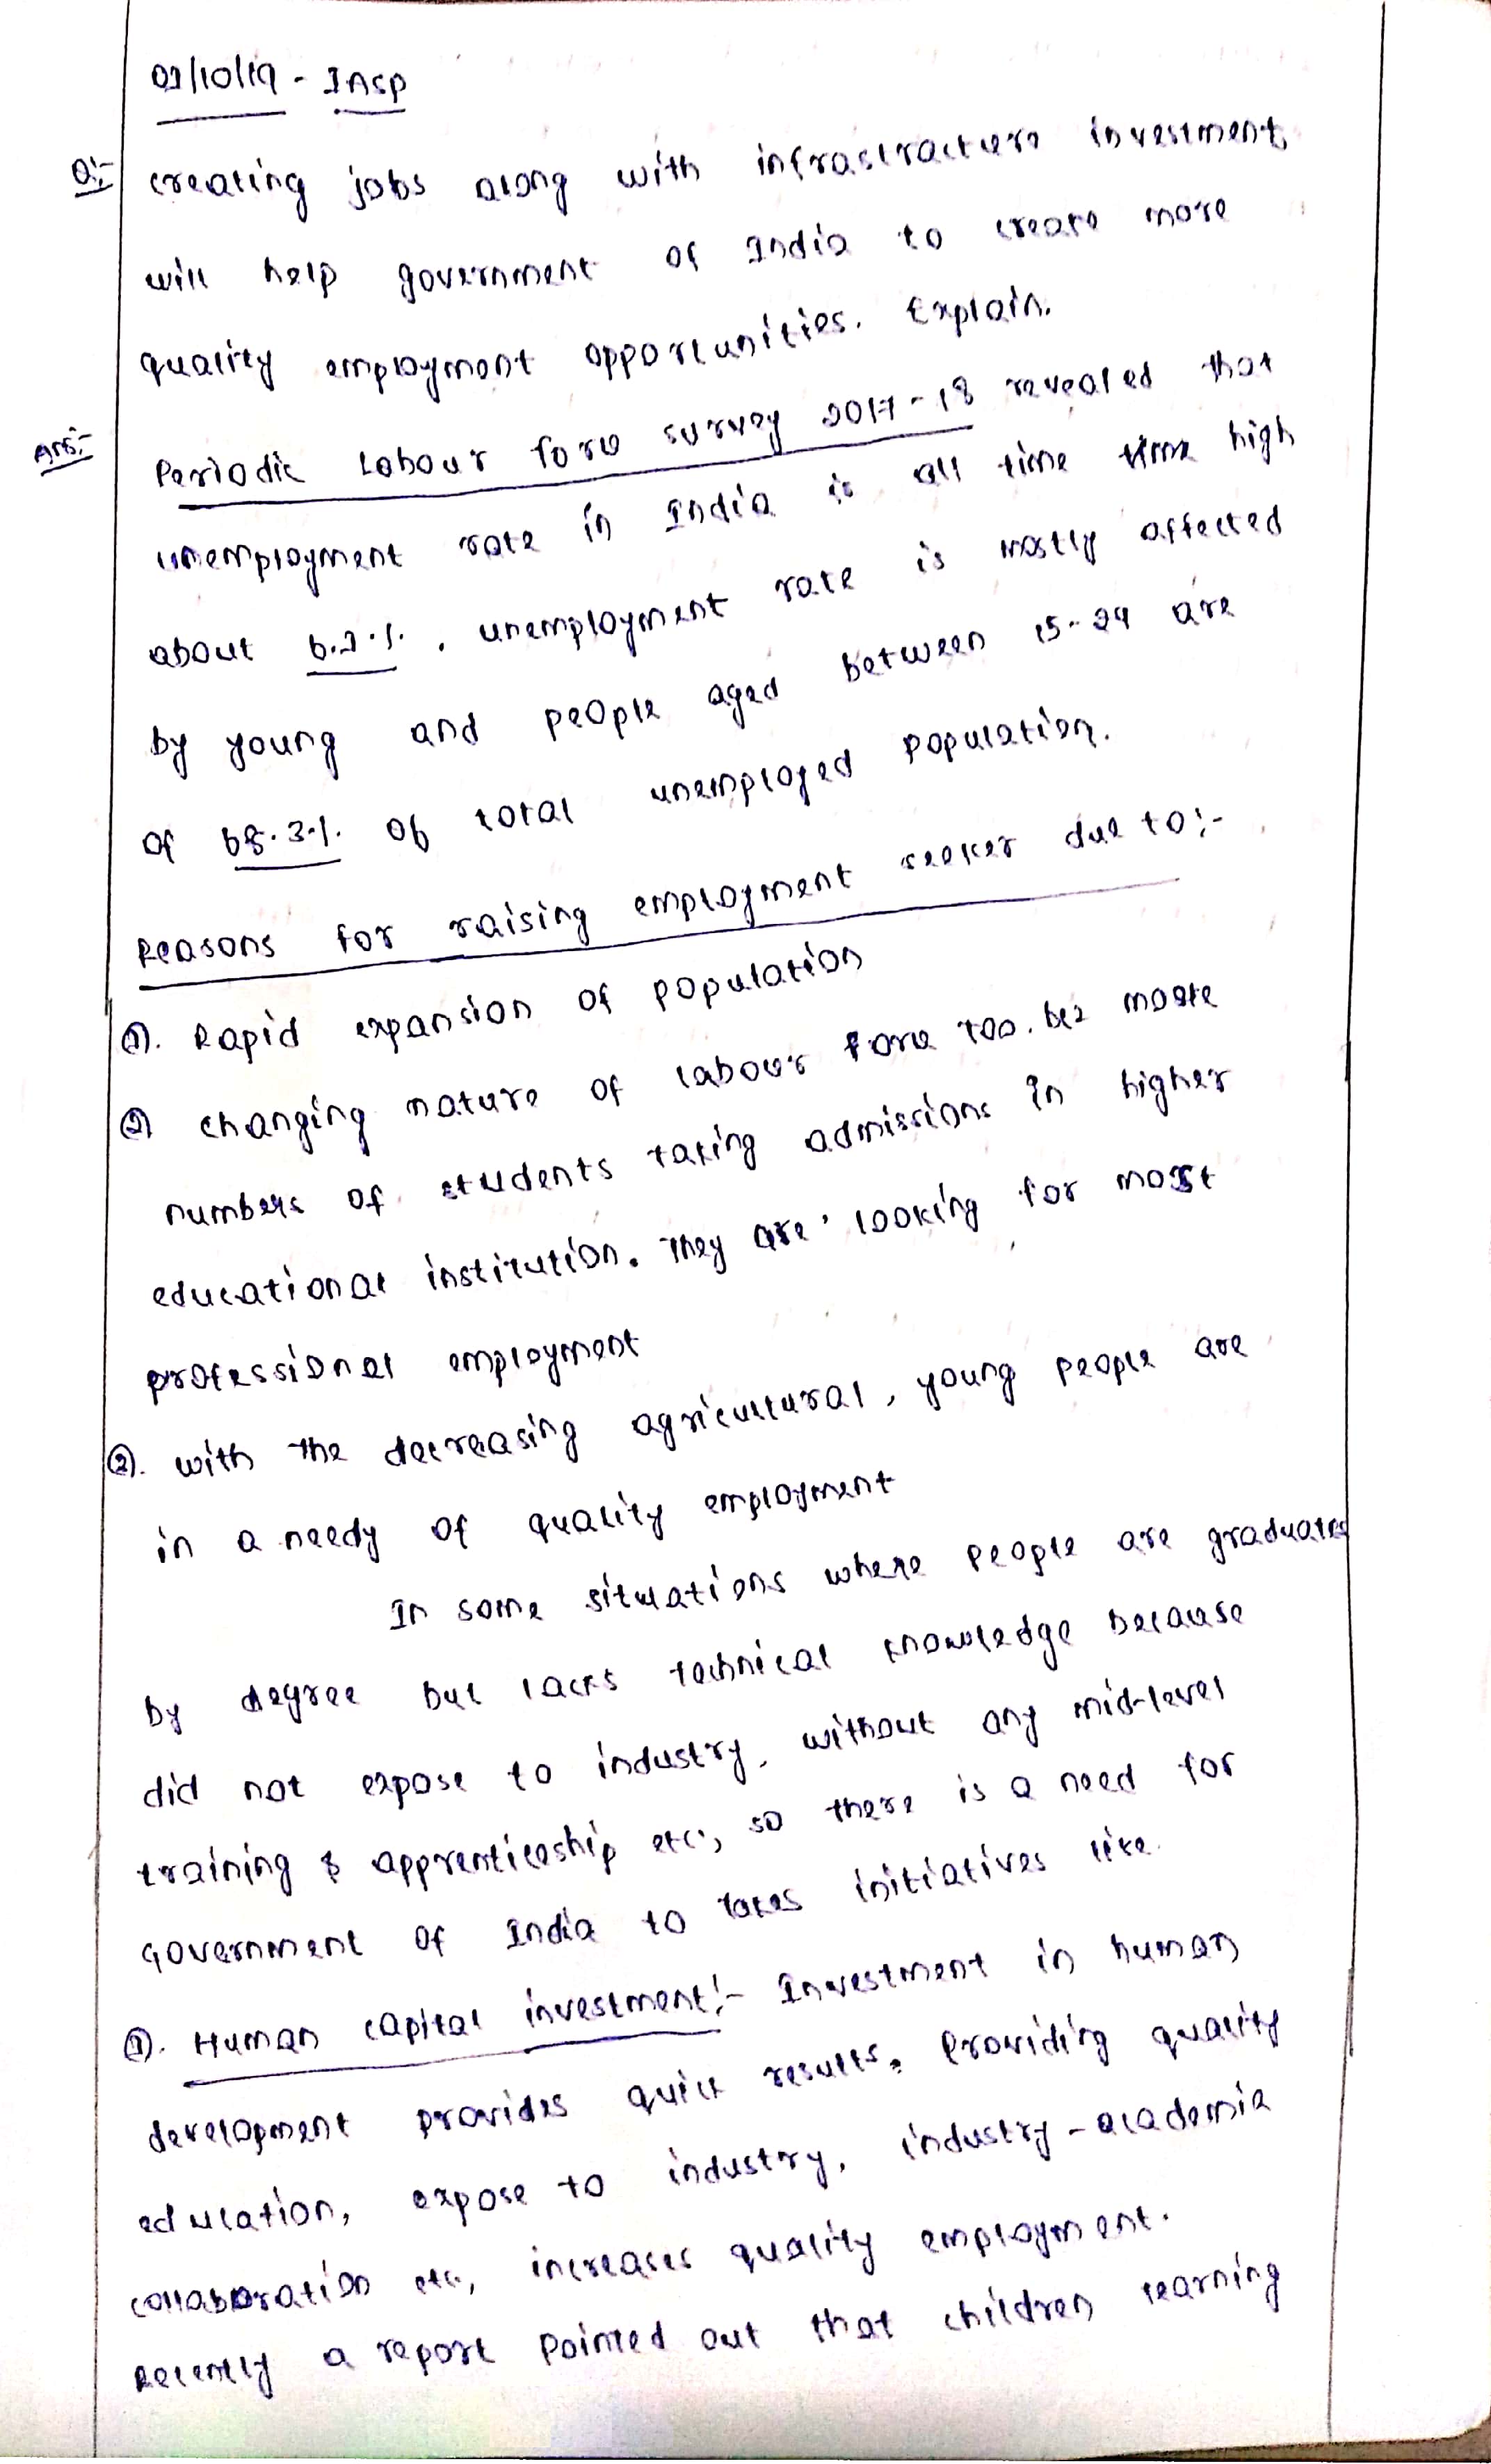 01/10/19 - INSP
Q:- creating jobs along with infrastracture investment
will help government of India to create more
quality employment opportunities. Explain.
Ans:- Periodic Labour force survey 2017-18 revealed that
unemployment rate in India is all time high
about 6.1%. unemployment rate is mostly affected
by young and people aged between 15-24 are
of 68.3% of total unemployed population.
Reasons for raising employment seeker due to:-
①. Rapid expansion of population
② changing nature of labour force too. bez more
numbers of students taking admissions in higher
educational institution. They are looking for most
professional employment
②. with the decreasing agricultural, young people are
in a needy of quality employment
In some situations where people are graduates
by degree but lacks technical knowledge because
did not expose to industry, without any mid-level
training & apprenticeship etc, so there is a need for
Government of India to takes initiatives like
①. Human capital investment:- Investment in human
development provides quick results. Providing quality
education, expose to industry, industry-academia
collaboration etc, increases quality employment.
Recently a report pointed out that children learning